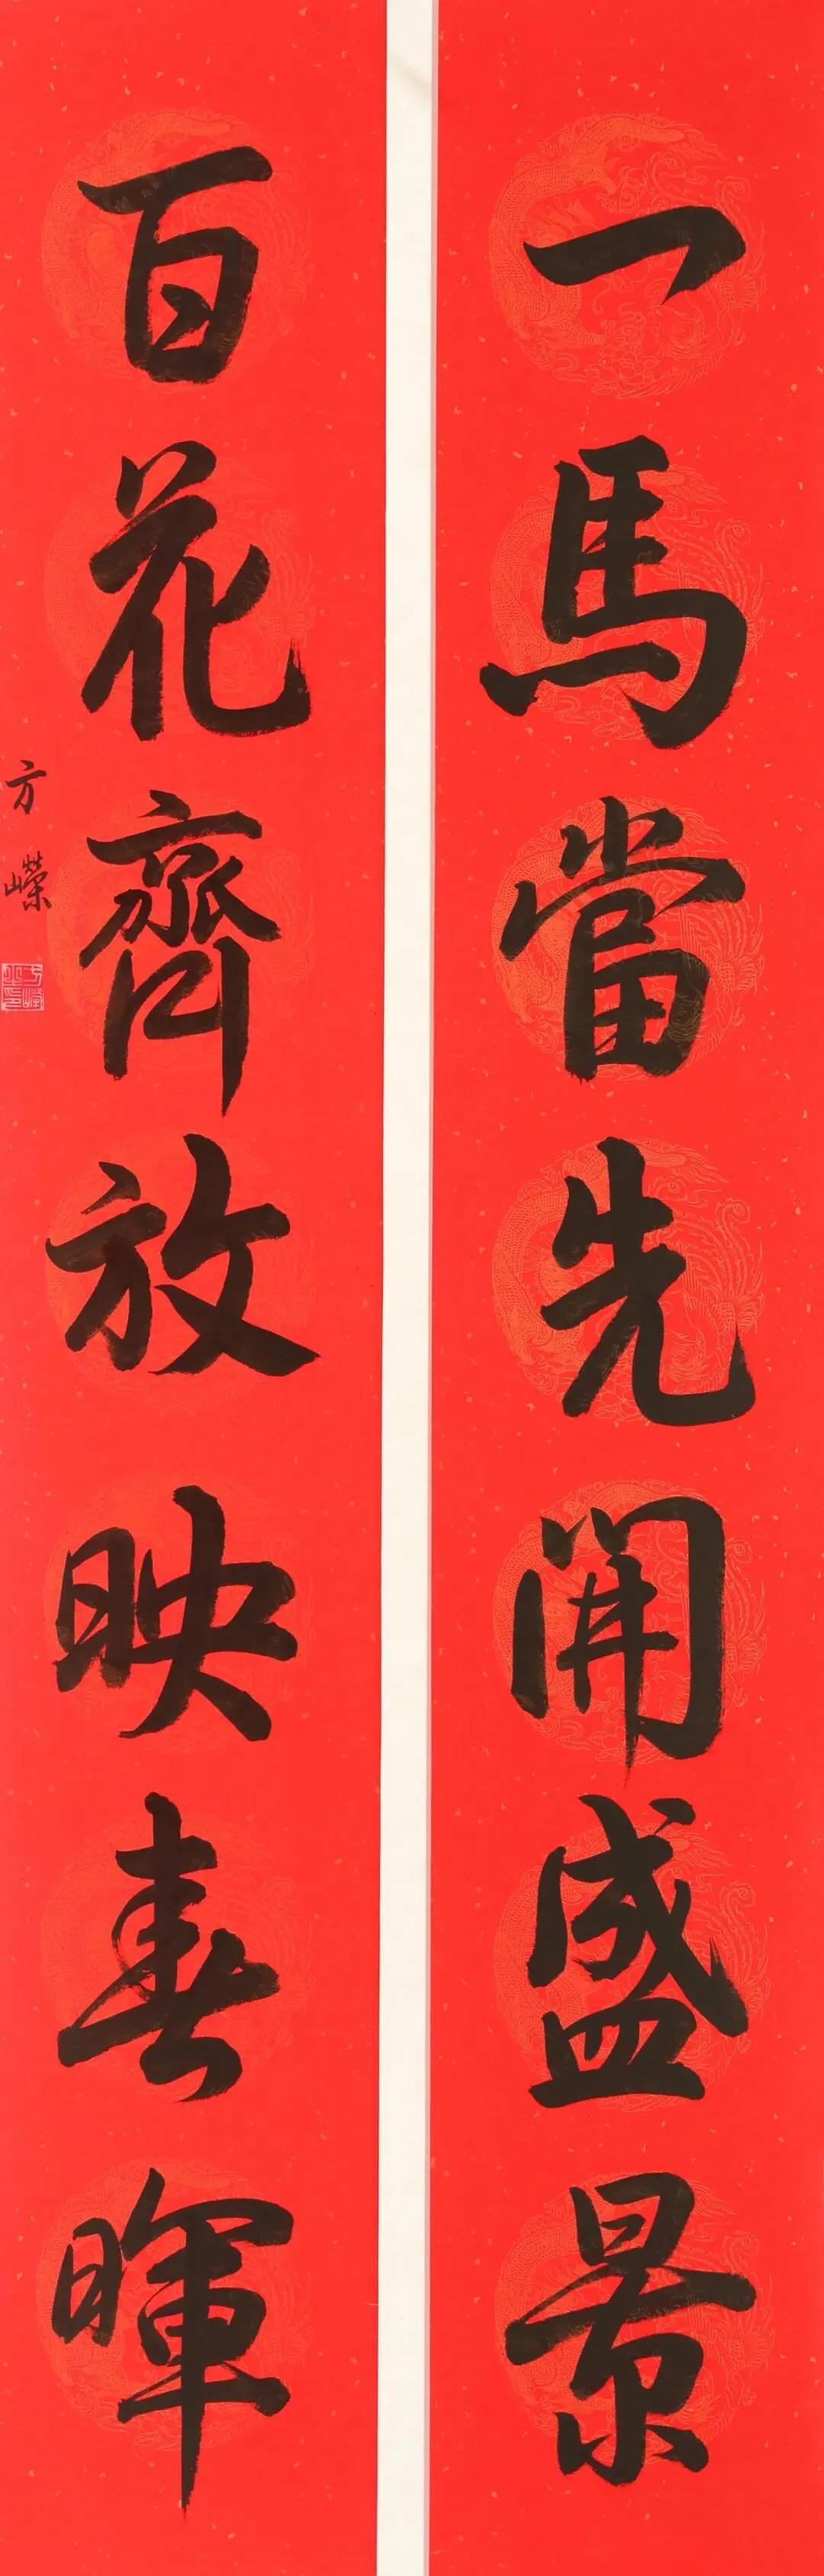 一馬當先開盛景
百花齊放映春暉
方嶸